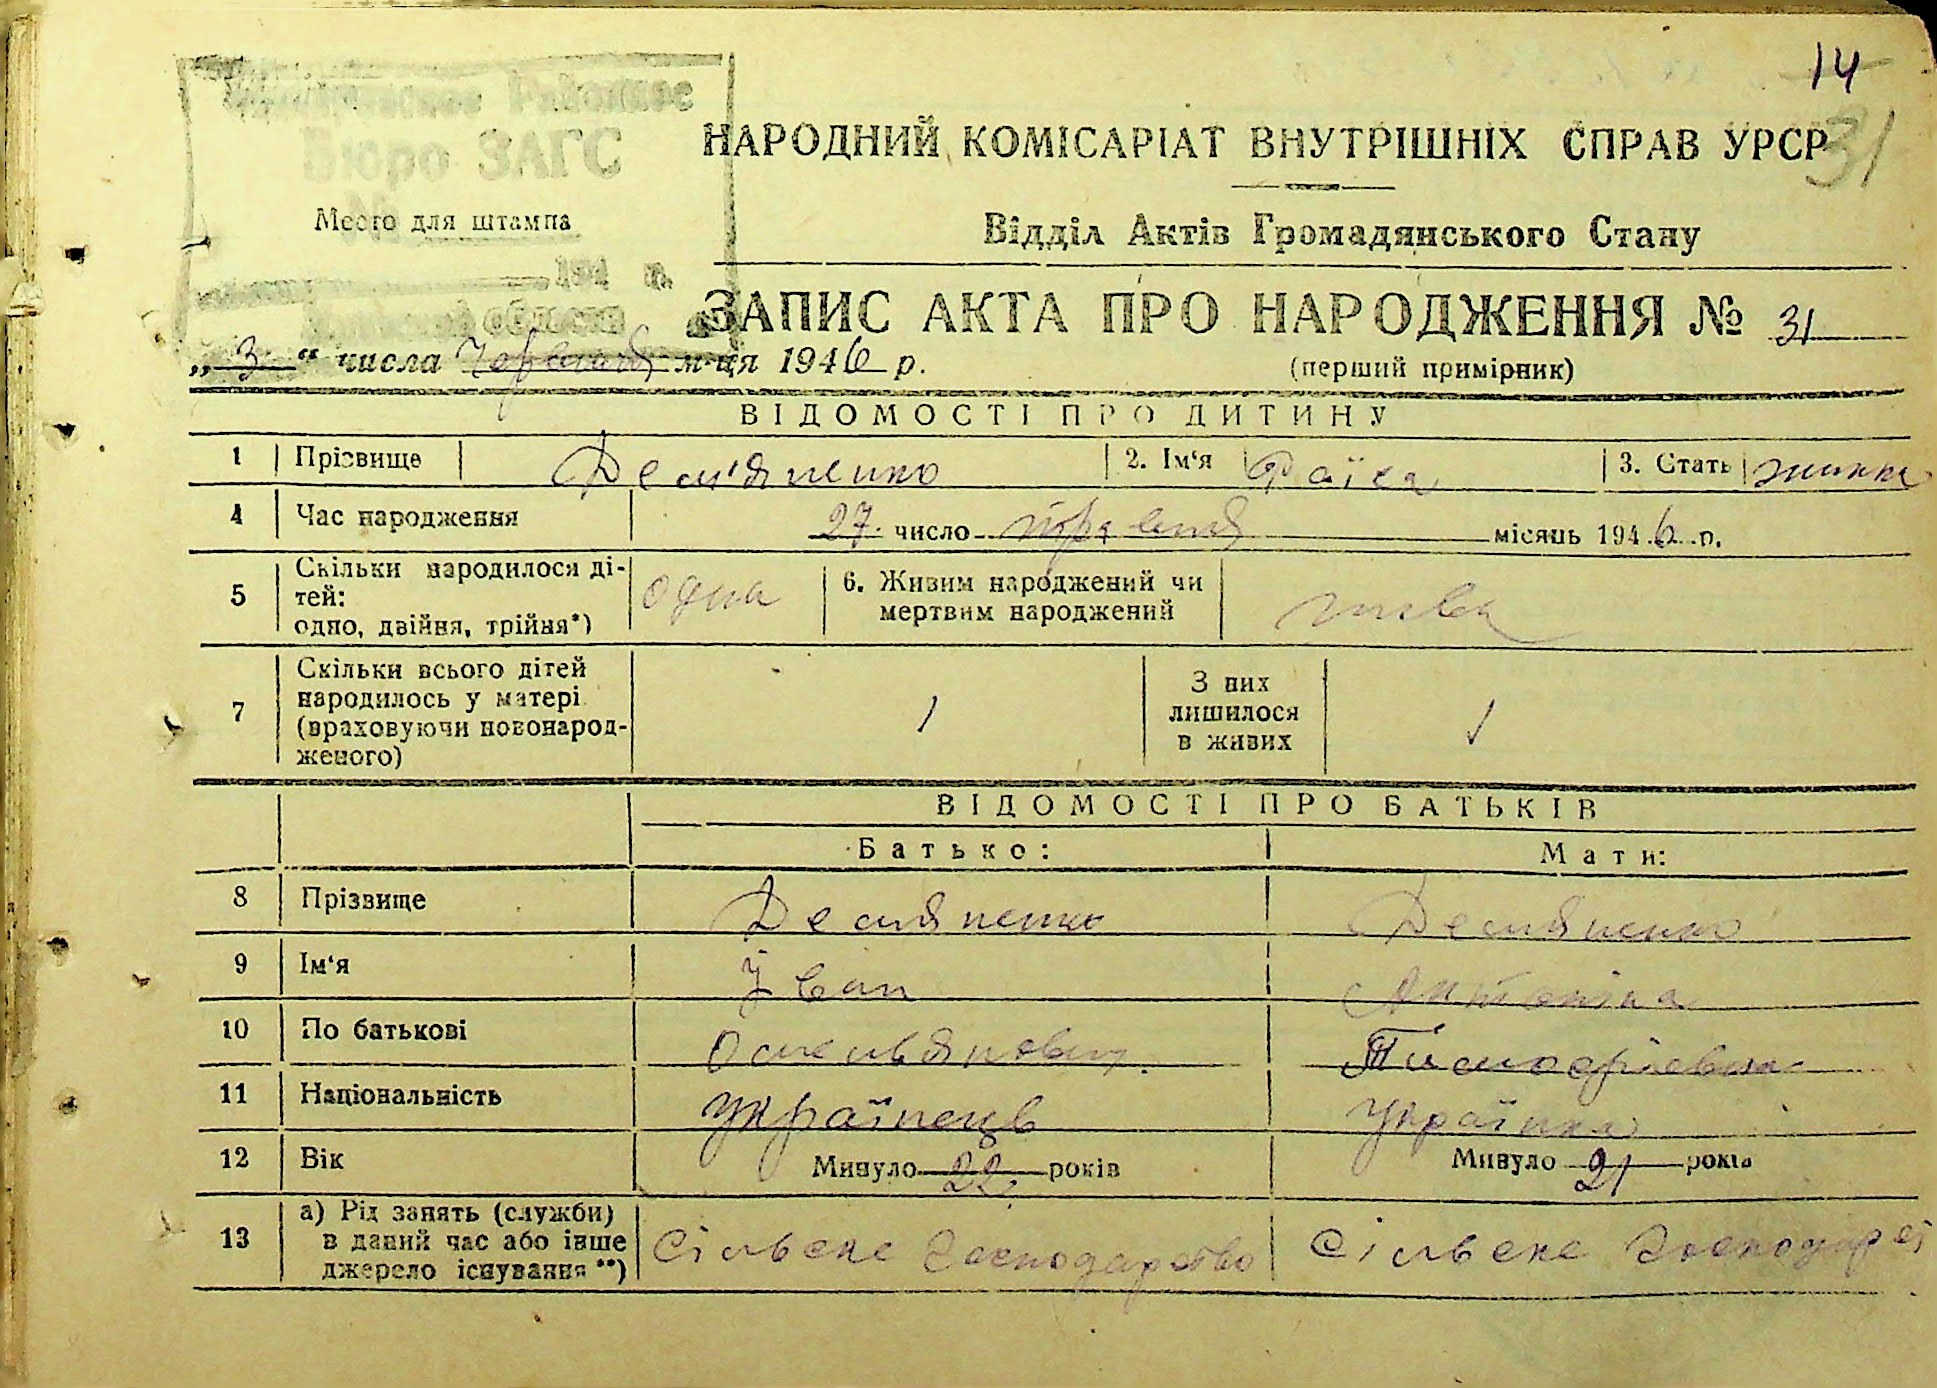 14
31
Районное
Бюро ЗАГС
Место для штампа
194 г.
области
НАРОДНИЙ КОМІСАРІАТ ВНУТРІШНІХ СПРАВ УРСР
Відділ Актів Громадянського Стану
ЗАПИС АКТА ПРО НАРОДЖЕННЯ № 31
„ 3 “ числа Червня м-ця 1946 р. (перший примірник)
ВІДОМОСТІ ПРО ДИТИНУ
1 Прізвище Дем'яненко 2. Ім‘я Раїса 3. Стать жинка
4 Час народження 27 число травня місяць 1946 р.
5 Скільки народилося ді-
тей:
одно, двійня, трійня*) одна 6. Живим народжений чи
мертвим народжений жива
7 Скільки всього дітей
народилось у матері
(враховуючи новонарод-
женого) 1 З них
лишилося
в живих 1
ВІДОМОСТІ ПРО БАТЬКІВ
Батько: Мати:
8 Прізвище Демяненко Демяненко
9 Ім‘я Іван Антоніна
10 По батькові Омельянович
11 Національність Українець Українка
12 Вік Минуло 22 років Минуло 21 років
13 а) Рід занять (служби)
в даний час або інше
джерело існування**) Сільске господарство Сільске